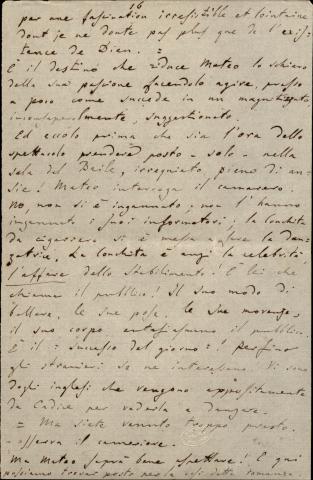 16
par une fascination irresistible et lointaine
dont je ne doute pas plus que de l'exis-
tence de Dieu. =
È il destino che riduce Mateo lo schiavo
della sua passione facendolo agire, presso
a poco come succede in un magnetizzato,
inconsapevolmente, suggestionato.
Ed eccolo prima che sia l'ora dello
spettacolo prendere posto - solo - nella
sala del Baile, irrequieto, pieno di an-
sie! Mateo interroga il cameriere.
No, non si è ingannato; non l'hanno
ingannato i suoi informatori; la Conchita
da cigarriera si è messa a fare la dan-
zatrice. La Conchita è anzi la celebrità
l'affare dello stabilimento! È lei che
chiama il pubblico! Il suo modo di
ballare, le sue pose, le sue movenze,
il suo corpo entusiasmano il pubblico.
È il = successo del giorno = ! Perfino
gli stranieri se ne interessano! Vi sono
degli inglesi che vengono appositamente
da Cadice per vederla a danzare.
= Ma siete venuto troppo presto.
- osserva il cameriere.
Ma Mateo saprà bene aspettare! E qui
possiamo trovar posto per la così detta romanza.